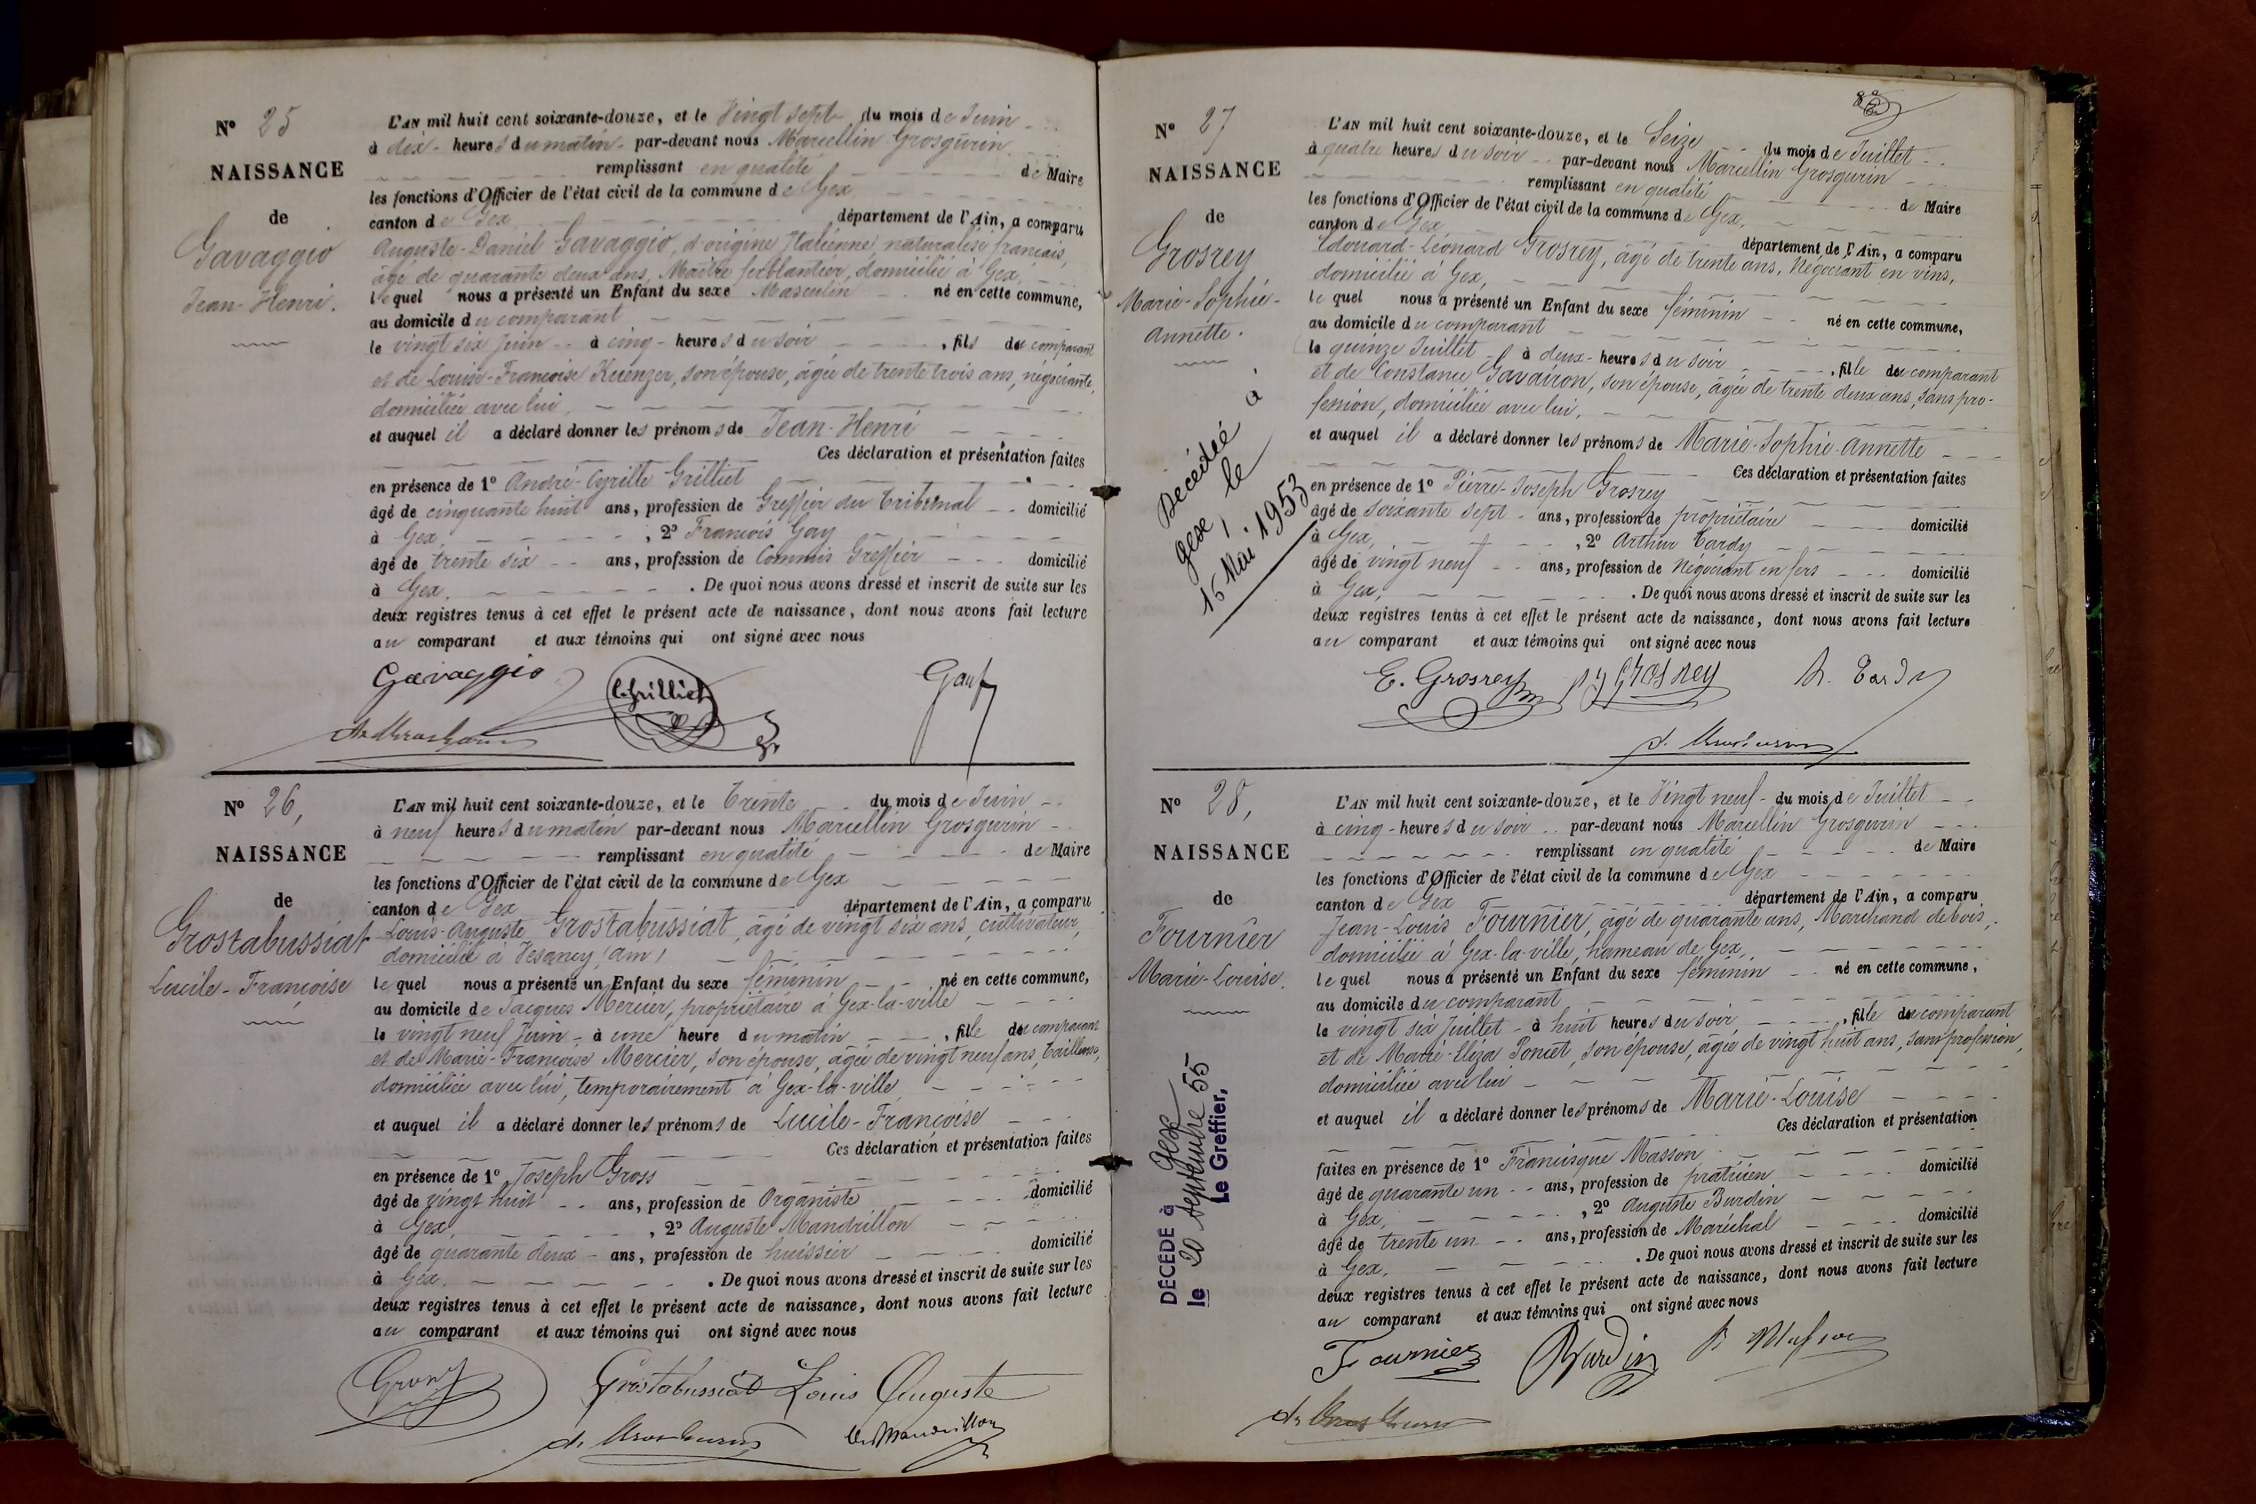 N° 25
NAISSANCE
de
Gavaggio
Jean-Henri.
L'AN mil huit cent soixante-douze, et le Vingt sept du mois de Juin
à dix heures du matin par-devant nous Marcellin Grosgurin
remplissant en qualité de Maire
les fonctions d'Officier de l'état civil de la commune de Gex
canton de Gex département de l'Ain, a comparu
Auguste-Daniel Gavaggio, d'origine Italienne, naturalisé français,
âgé de quarante deux ans, Maître ferblantier, domicilié à Gex,
lequel nous a présenté un Enfant du sexe Masculin né en cette commune,
au domicile du comparant
le vingt six Juin à cinq heures du soir, fils du comparant
et de Louise-Françoise Kuenzer, son épouse, âgée de trente trois ans, négociante,
domiciliée avec lui,
et auquel il a déclaré donner les prénoms de Jean-Henri
Ces déclaration et présentation faites
en présence de 1° André-Cyrille Grilliet
âgé de cinquante huit ans, profession de Greffier du Tribunal domicilié
à Gex, 2° François Gay
âgé de trente six ans, profession de Commis Greffier domicilié
à Gex. De quoi nous avons dressé et inscrit de suite sur les
deux registres tenus à cet effet le présent acte de naissance, dont nous avons fait lecture
au comparant et aux témoins qui ont signé avec nous
Gavaggio
C. Grilliet
Gay
N° 26,
NAISSANCE
de
Grostabussiat
Lucile-Françoise
L'AN mil huit cent soixante-douze, et le Trente du mois de Juin
à neuf heures du matin par-devant nous Marcellin Grosgurin
remplissant en qualité de Maire
les fonctions d'Officier de l'état civil de la commune de Gex
canton de Gex département de l'Ain, a comparu
Louis-Auguste Grostabussiat, âgé de vingt six ans, cultivateur,
domicilié à Vesancy (Ain)
lequel nous a présenté un Enfant du sexe féminin né en cette commune,
au domicile de Jacques Mercier, propriétaire à Gex-la-ville
le vingt neuf Juin à une heure du matin, fille du comparant
et de Marie-Françoise Mercier, son épouse, âgée de vingt neuf ans, tailleuse,
domiciliée avec lui, temporairement à Gex-la-ville
et auquel il a déclaré donner les prénoms de Lucile-Françoise
Ces déclaration et présentation faites
en présence de 1° Joseph Gross
âgé de vingt huit ans, profession de Organiste domicilié
à Gex, 2° Auguste Mandrillon
âgé de quarante deux ans, profession de huissier domicilié
à Gex. De quoi nous avons dressé et inscrit de suite sur les
deux registres tenus à cet effet le présent acte de naissance, dont nous avons fait lecture
au comparant et aux témoins qui ont signé avec nous
Gross
Grostabussiat Louis Auguste
Mandrillon
N° 27
NAISSANCE
de
Grosrey
Marie-Sophie-
Annette.
Décédée à
Gex, le
15 Mai 1953
L'AN mil huit cent soixante-douze, et le Seize du mois de Juillet
à quatre heures du soir par-devant nous Marcellin Grosgurin
remplissant en qualité de Maire
les fonctions d'Officier de l'état civil de la commune de Gex,
canton de Gex département de l'Ain, a comparu
Edouard-Léonard Grosrey, âgé de trente ans, Négociant en vins,
domicilié à Gex,
lequel nous a présenté un Enfant du sexe féminin né en cette commune,
au domicile du comparant
le quinze Juillet à deux heures du soir, fille du comparant
et de Constance Gavairon, son épouse, âgée de trente deux ans, sans pro-
fession, domiciliée avec lui.
et auquel il a déclaré donner les prénoms de Marie-Sophie-Annette
Ces déclaration et présentation faites
en présence de 1° Pierre-Joseph Grosrey
âgé de soixante sept ans, profession de propriétaire domicilié
à Gex, 2° Arthur Tardy
âgé de vingt neuf ans, profession de Négociant en fers domicilié
à Gex, De quoi nous avons dressé et inscrit de suite sur les
deux registres tenus à cet effet le présent acte de naissance, dont nous avons fait lecture
au comparant et aux témoins qui ont signé avec nous
E. Grosrey
Grosrey
A. Tardy
N° 28,
NAISSANCE
de
Fournier
Marie-Louise.
DÉCÉDÉ à Gex
le 20 septembre 55
Le Greffier,
L'AN mil huit cent soixante-douze, et le Vingt neuf du mois de Juillet
à cinq heures du soir par-devant nous Marcellin Grosgurin
remplissant en qualité de Maire
les fonctions d'Officier de l'état civil de la commune de Gex
canton de Gex département de l'Ain, a comparu
Jean-Louis Fournier, âgé de quarante ans, Marchand de bois,
domicilié à Gex-la-ville, hameau de Gex,
lequel nous a présenté un Enfant du sexe féminin né en cette commune,
au domicile du comparant
le vingt six Juillet à huit heures du soir, fille du comparant
et de Marie-Eliza Poncet, son épouse, âgée de vingt huit ans, sans profession,
domiciliée avec lui
et auquel il a déclaré donner les prénoms de Marie-Louise
Ces déclaration et présentation
faites en présence de 1° Francisque Masson
âgé de quarante un ans, profession de praticien domicilié
à Gex, 2° Auguste Burdin
âgé de trente un ans, profession de Maréchal domicilié
à Gex. De quoi nous avons dressé et inscrit de suite sur les
deux registres tenus à cet effet le présent acte de naissance, dont nous avons fait lecture
au comparant et aux témoins qui ont signé avec nous
Fournier
Burdin
F. Masson